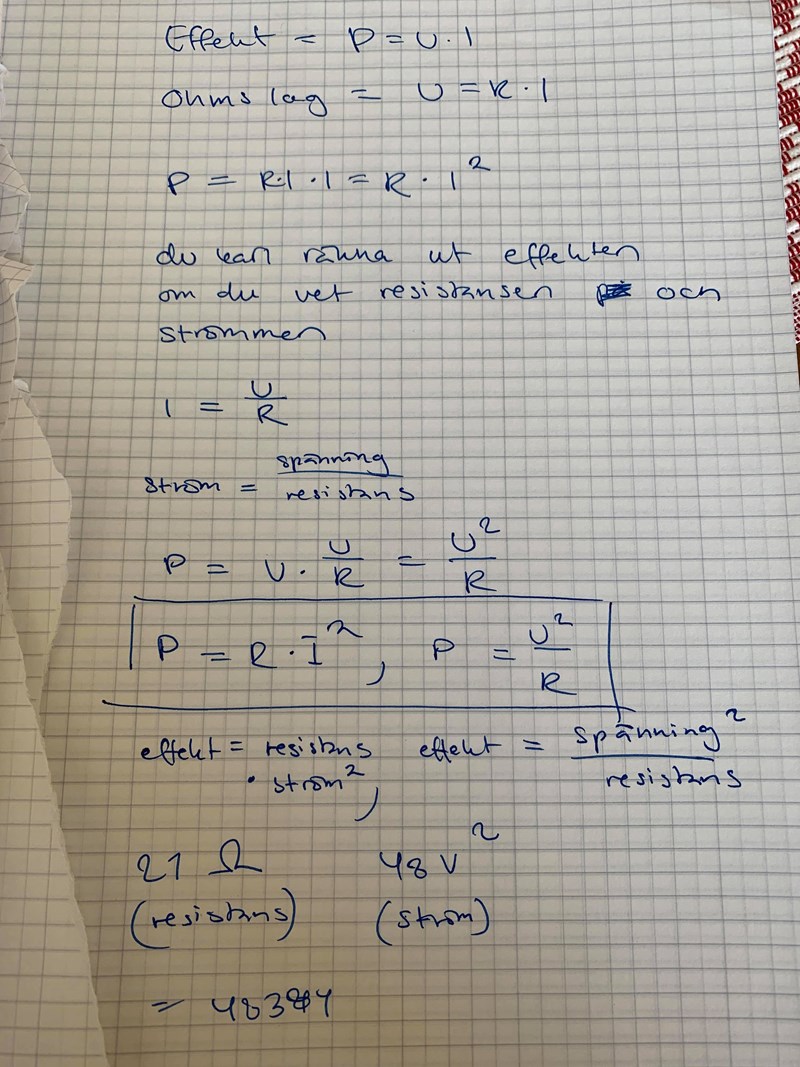 Effekt = P = U · I
Ohms lag = U = R · I
P = R·I · I = R · I²
du kan räkna ut effekten
om du vet resistansen och
strömmen
I = U/R
ström = spänning/resistans
P = U · U/R = U²/R
P = R · I², P = U²/R
effekt = resistans · ström², effekt = spänning²/resistans
21 Ω 48 V²
(resistans) (ström)